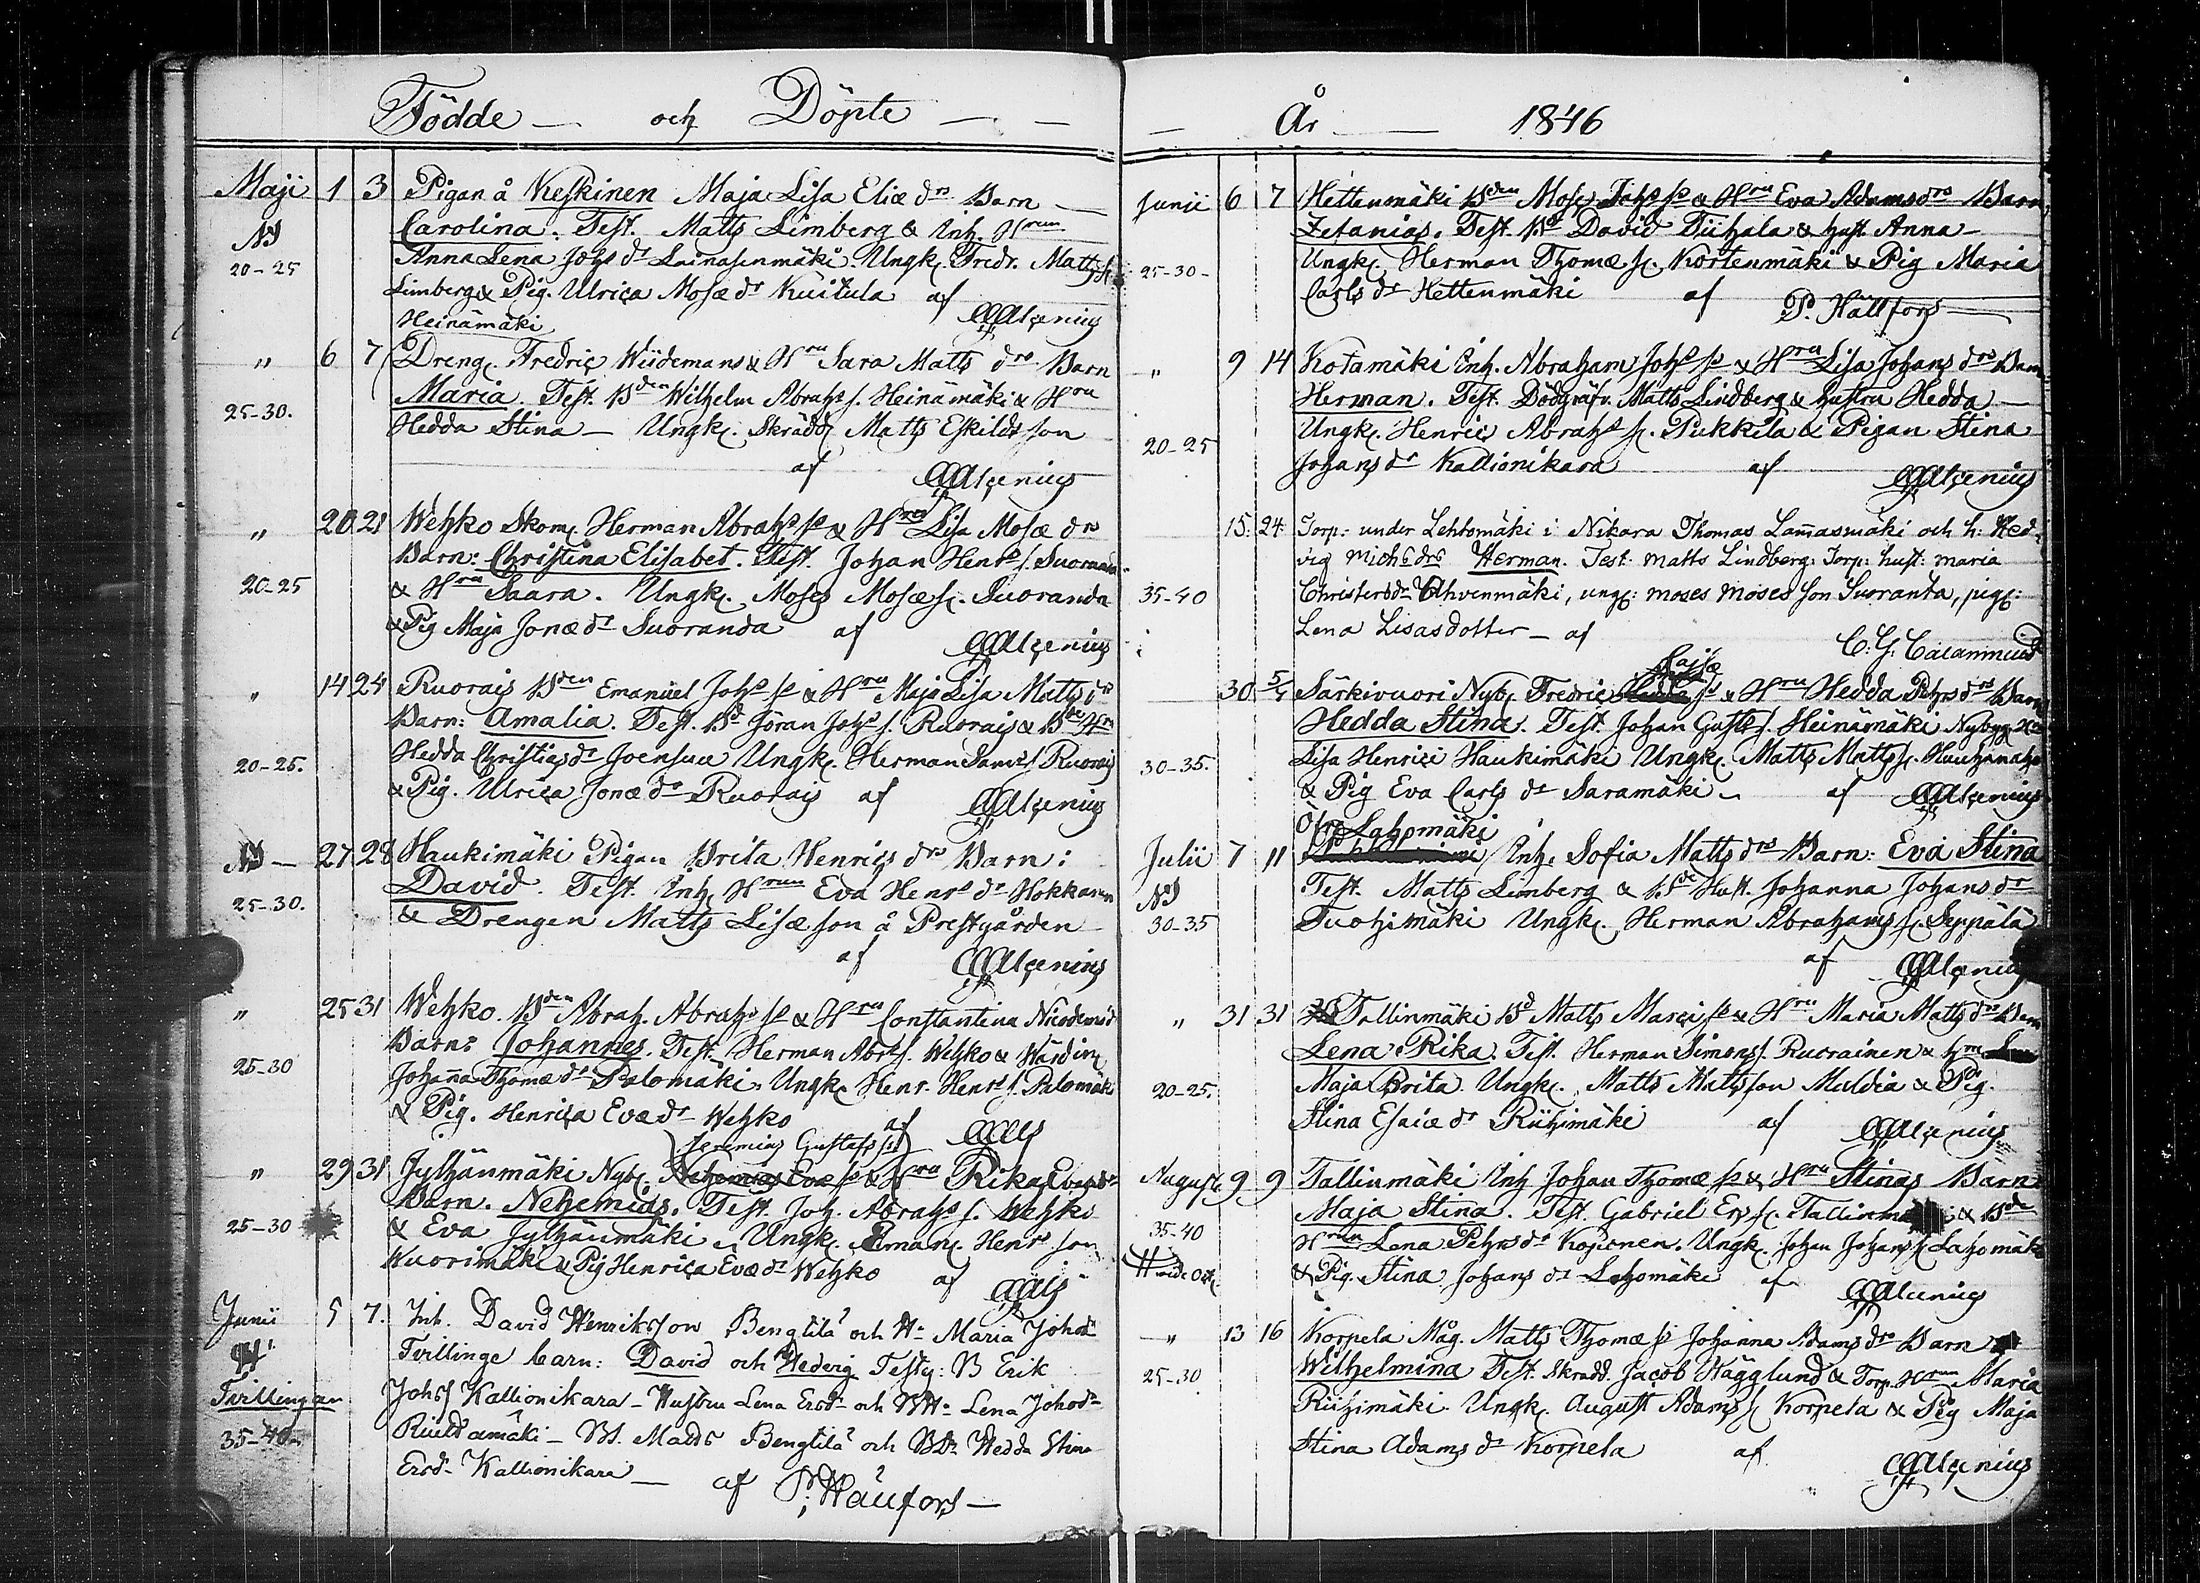 Födde — och Döpte — —
Maji 1 3 Pigan å Keskinen Maja Lisa Eliæ drs Barn —
NI Carolina. Test. Matts Limberg & Inh. Hrun
20-25 Anna Lena Johs dr Lamasenmäki. Ungk. Fredr. Matts s.
Limberg & Pig. Ulrica Mosæ dr Kuitula af
Heinämäki AAAlcenius
" 6 7 Dreng. Fredric Wiidemans & Hru Sara Matts drs Barn
Maria. Test. Bden Wilhelm Abrahs s. Heinämäki & Hru
25-30. Hedda Stina — Ungk. Skrädd. Matts Eskildsson
af AAAlcenius
" 20 21 Wehko Skom. Herman Abrahs ss & Hrus Lisa Mosæ drs
Barn: Christina Elisabet. Test. Johan Henrs s. Suoranda
20-25 & Hru Saara. Ungk. Moses Mosæ s. Suoranda
& Pig Maja Jonæ dr Suoranda af AAAlcenius
" 14 24 Ruorais Bden Emanuel Johs ss & Hru Maja Lisa Matts drs
Barn: Amalia. Test. Bd Jöran Johs s. Ruorais & Bde Hru
Hedda Christias dr Joensuu Ungk. Herman Sam. s. Ruorais
20-25. & Pig. Ulrica Jonæ dr Ruorais af AAAlcenius
NI — 27 28 Haukimäki Pigan Brita Henrics drs Barn:
David. Test. Inh. Hrun Eva Henrs dr Hokkanen
25-30. & Drengen Matts Lisæ son å Prestgården
af AAAlcenius
" 25 31 Wehko. Bden Abrah. Abrahs ss & Hru Constantina Nicodemi d
Barn: Johannes. Test. Herman Abrs s. Wehko & Wärdin
25-30 Johanna Thomæ dr Palomäki. Ungk. Henr. Henrs s. Palomäki
& Pig. Henrica Evæ dr Wehko af AAAls
Jeremias Gustafs ss
" 29 31 Jylhänmäki Nyb. Nehemias Evæ ss & Hru Rikas Evæ drs
Barn. Nehemias. Test. Joh. Abrahs s. Wehko
25-30 & Eva Jylhänmäki. Ungk. Eman. Henrs son
Wuorimäki & Pig Henrica Evæ dr Wehko af AAAls
Junii 5 7. Inh. David Henriksson Bengtilä och H. Maria Johsdr
Tvillinge barn: David och Hedvig Testes: B Erik
Tvillingar Johs s Kallionikara — Hustru Lena Ersdr och BH. Lena Johsdr
35-40 — B. Matts Bengtilä och BDr Hedda Stina
Ersdr Kallionikara — af P. Hällfors —
— År — 1846
Junii 6 7 Hettenmäki Bden Mose Johs ss & Hru Eva Adams drs Barn
Zefanias. Test. Bd David Tiihala & hust Anna —
25-30- Ungk. Herman Thomæ s. Kortenmäki & Pig Maria
Carls dr Hettenmäki af P. Hällfors —
" 9 14 Kotamäki Inh. Abraham Johs ss & Hru Lisa Johans drs Barn
Herman. Test. Dödgräfv. Matts Lindberg & hustru Hedda —
20-25 Ungk. Henric Abrahs s. Pukkila & Pigan Stina
Johans dr Kallionikara af AAAlcenius
15. 24. Torp: under Lehtomäki i Nikara Thomas Lammasmäki och h: Hed-
vig Michs drs Herman. Test: Matts Lindberg: Torp: hust: Maria
35-40 Christersdr Ahvenmäki, ungk: Moses Moses son Suoranta, pig:
Lena Lisasdotter — af C. G. Calamnius
Caisæ
30 5/7 Särkivuori Nyb. Fredric ss & Hru Hedda Pehrs drs Barn
Hedda Stina. Test. Johan Gusts s. Heinämäki Nybygg. Hru
30-35. Lisa Henrici Haukimäki Ungk. Matts Matts s.
& Pig Eva Carls dr Saramäki — af AAAlcenius
Öfre Lahomäki
Julii 7 11 Inh. Sofia Matts drs Barn: Eva Stina
NI Test. Matts Limberg & Bde Hust. Johanna Johans dr
30-35 Tuohimäki Ungk. Herman Abrahams s. Seppälä
af AAAlcenius
" 31 31 Tallinmäki Bd Matts Marci ss & Hru Maria Matts drs Barn
Lena Rika. Test. Herman Simons s. Ruorainen & hru
20-25. Maja Brita Ungk. Matts Mattsson Muldia & Pig.
Stina Esaiæ dr Riihimäki af AAAlcenius
August. 9 9 Tallinmäki Inh Johan Thomæ ss & Hru Stinas Barn
35-40 Maja Stina. Test. Gabriel Ers s. Tallinmäki & Bde
Hrun Lena Pehrs dr Kojonen. Ungk. Johan Johans s. Lahomäki
& Pig. Stina Johans dr Lahomäki af AAAlcenius
— " 13 16 Korpela Måg. Matts Thomæ ss Johanna Adams drs Barn
25-30 Wilhelmina Test. Skrädd. Jacob Hägglund & Torp. Hrun Maria
Riihimäki Ungk. August Adams s. Korpela & Pig Maja
Stina Adams dr Korpela af
AAAlcenius